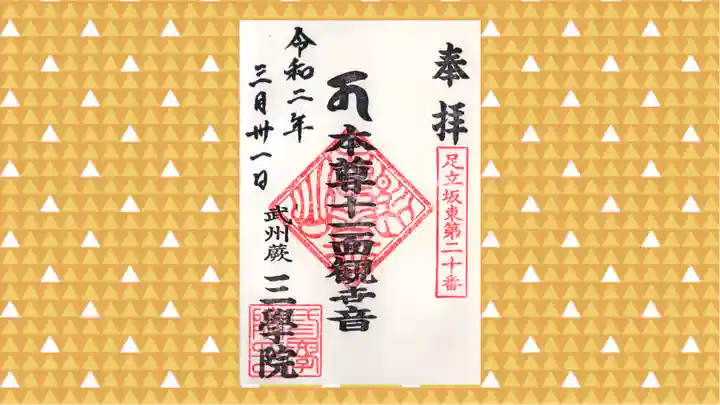 奉拝
足立坂東第二十番
本尊十一面観世音
武州蕨
三學院
令和二年
三月卅一日